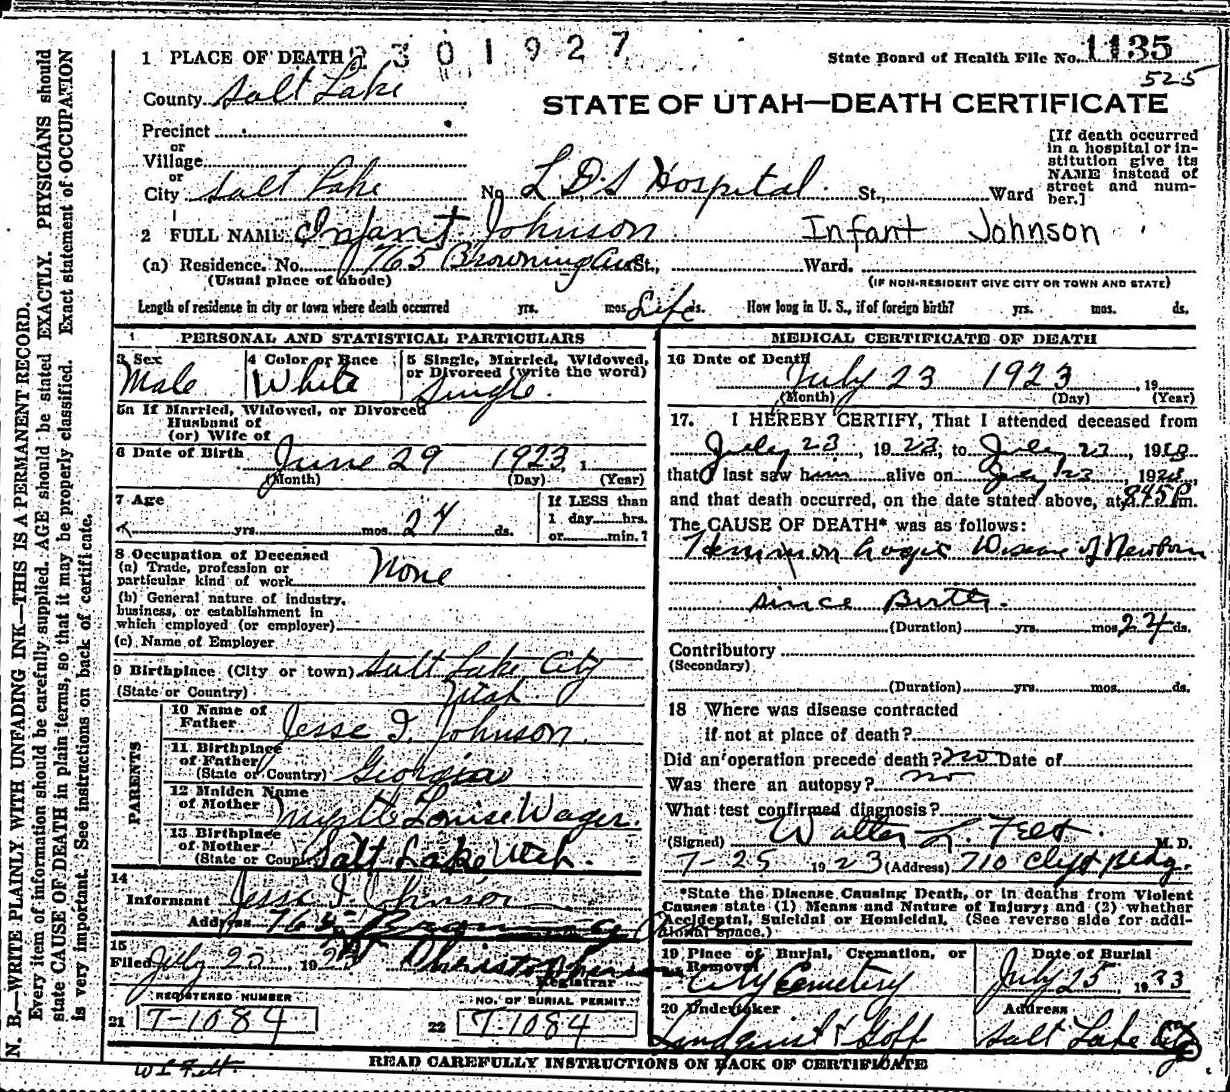 N. B.—WRITE PLAINLY WITH UNFADING INK—THIS IS A PERMANENT RECORD.
Every item of information should be carefully supplied. AGE should be stated EXACTLY. PHYSICIANS should
state CAUSE OF DEATH in plain terms, so that it may be properly classified. Exact statement of OCCUPATION
is very important. See instructions on back of certificate.
1 PLACE OF DEATH 2 3 0 1 9 2 7
State Board of Health File No. 1135
525
County Salt Lake
STATE OF UTAH—DEATH CERTIFICATE
Precinct
or
Village
or
City Salt Lake No. L.D.S Hospital. St., Ward
[If death occurred
in a hospital or in-
stitution give its
NAME instead of
street and num-
ber.]
2 FULL NAME Infant Johnson Infant Johnson
(a) Residence. No. 765 Browning Ave St., Ward.
(Usual place of abode) (IF NON-RESIDENT GIVE CITY OR TOWN AND STATE)
Length of residence in city or town where death occurred yrs. mos. Life ds. How long in U. S., if of foreign birth? yrs. mos. ds.
PERSONAL AND STATISTICAL PARTICULARS
3 Sex Male
4 Color or Race White
5 Single, Married, Widowed,
or Divorced (write the word)
Single.
5a If Married, Widowed, or Divorced
Husband of
(or) Wife of
6 Date of Birth June 29 1923, 1
(Month) (Day) (Year)
7 Age
yrs. mos. 24 ds.
If LESS than
1 day......hrs.
or......min.?
8 Occupation of Deceased
(a) Trade, profession or
particular kind of work None
(b) General nature of industry,
business, or establishment in
which employed (or employer)
(c) Name of Employer
9 Birthplace (City or town) Salt Lake City
(State or Country) Utah
PARENTS
10 Name of
Father Jesse I. Johnson.
11 Birthplace
of Father
(State or Country) Georgia
12 Maiden Name
of Mother Myrtle Louise Wager.
13 Birthplace
of Mother
(State or Country) Salt Lake Utah.
14
Informant Jesse I Johnson
Address 765
15
Filed July 25, 1923
Registrar
REGISTERED NUMBER
21 T-1084
NO. OF BURIAL PERMIT
22 T-1084
MEDICAL CERTIFICATE OF DEATH
16 Date of Death July 23 1923, 19
(Month) (Day) (Year)
17. I HEREBY CERTIFY, That I attended deceased from
July 23, 1923, to July 23, 19
that I last saw him alive on July 23, 19
and that death occurred, on the date stated above, at 845 P m.
The CAUSE OF DEATH* was as follows:
Hemmorhagic Disease of Newborn
since Birth.
(Duration) yrs. mos. 24 ds.
Contributory
(Secondary)
(Duration) yrs. mos. ds.
18 Where was disease contracted
if not at place of death?
Did an operation precede death? no Date of
Was there an autopsy? no
What test confirmed diagnosis?
(Signed) Walter L. Felt. M. D.
7-25 1923 (Address) 710 Clift Bldg.
*State the Disease Causing Death, or in deaths from Violent
Causes state (1) Means and Nature of Injury; and (2) whether
Accidental, Suicidal or Homicidal. (See reverse side for addi-
tional space.)
19 Place of Burial, Cremation, or
Removal
City Cemetery
Date of Burial
July 25 1923
20 Undertaker
Lindquist & Goff
Address
Salt Lake City
READ CAREFULLY INSTRUCTIONS ON BACK OF CERTIFICATE
W L Felt.